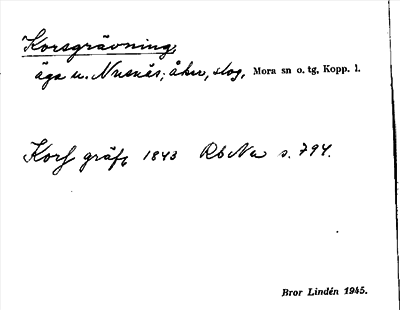 Korsgrävning,
äga u. Nusnäs; åker, slog, Mora sn o. tg, Kopp. l.
Korſ gräfg 1843 Rb Na s. 794.
Bror Lindén 1945.